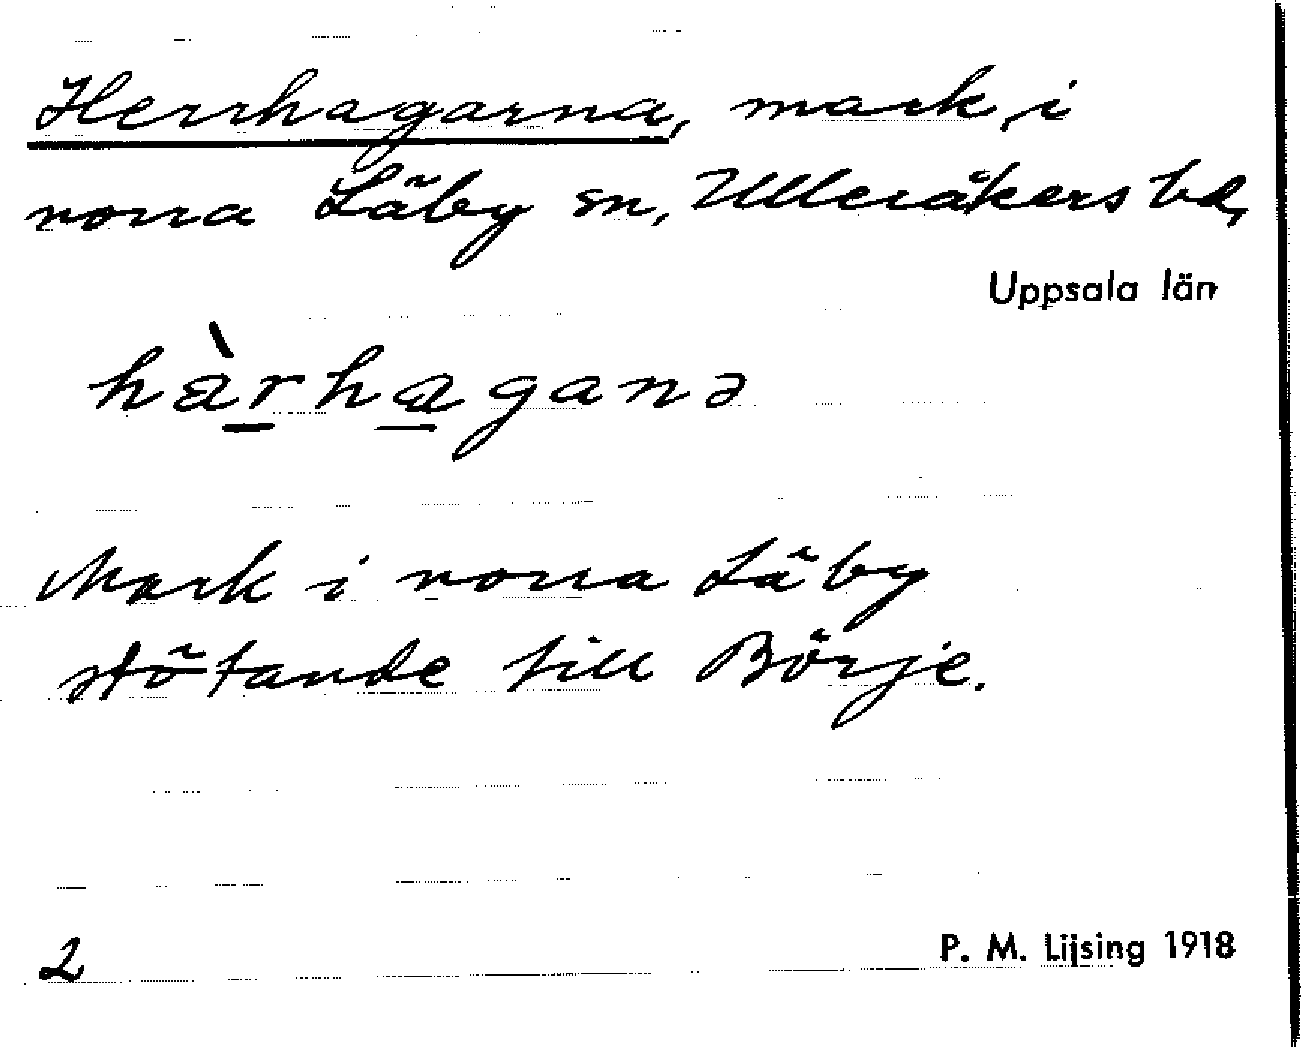 Herrhagarna, mark, i
norra Läby sn, Ulleråkers hd,
Uppsala län
hàrhaganə
Mark i norra Läby
stötande till Börje.
2
P. M. Lijsing 1918